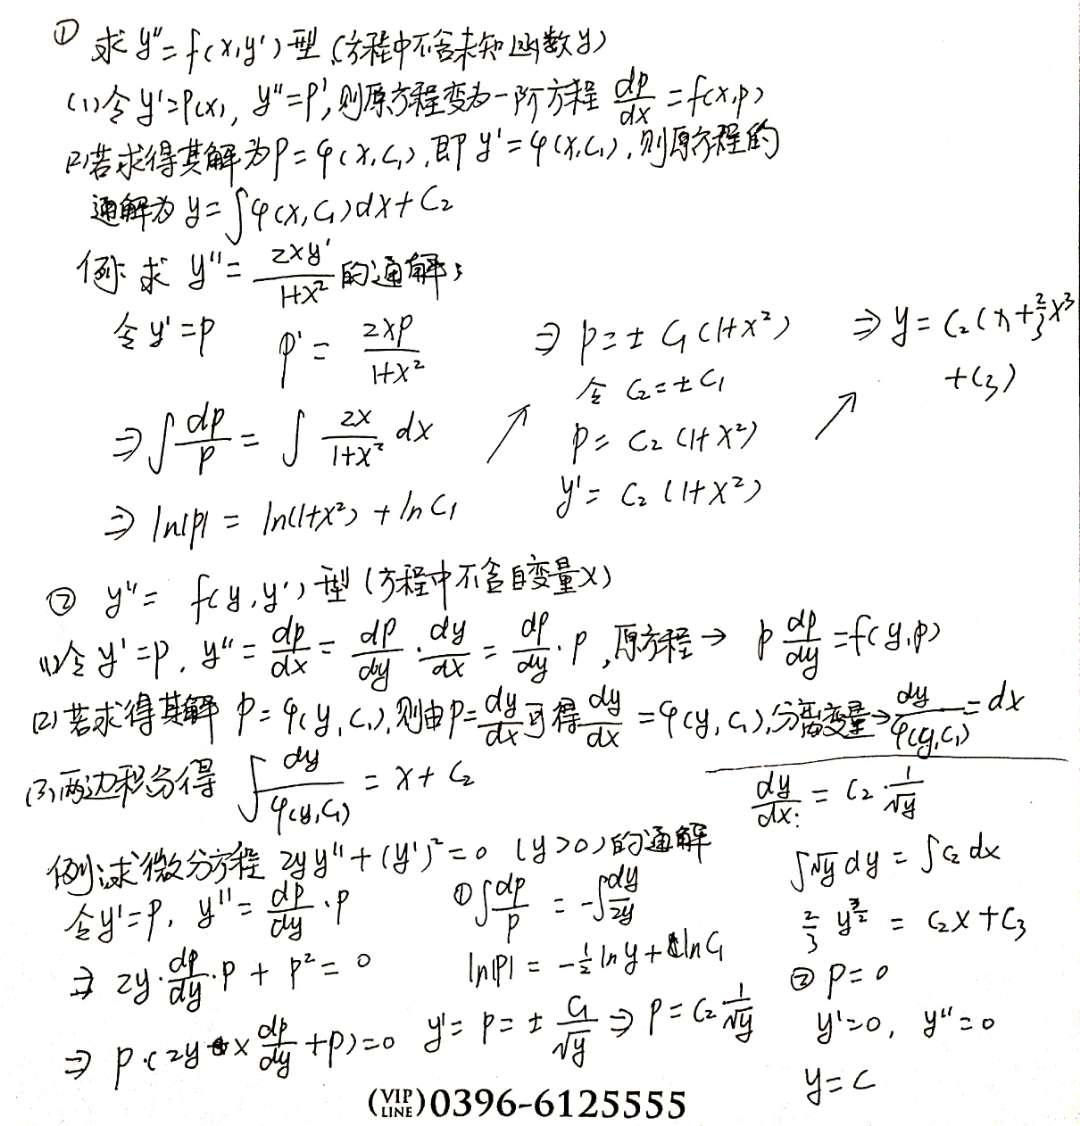 ① 求 y''=f(x,y')型(方程中不含未知函数y)
(1)令y'=P(x), y''=P',则原方程变为一阶方程 dp/dx=f(x,p)
(2)若求得其解为P=φ(x,C₁),即y'=φ(x,C₁),则原方程的
通解为 y=∫φ(x,C₁)dx+C₂
例:求 y''=2xy'/(1+x²) 的通解;
令y'=p p'=2xp/(1+x²)
⇒∫dp/p=∫2x/(1+x²) dx
⇒ ln|p|=ln(1+x²)+lnC₁
⇒ p=±C₁(1+x²)
令 C₂=±C₁
p=C₂(1+x²)
y'=C₂(1+x²)
⇒ y=C₂(x+2/3x³
+C₃)
② y''=f(y,y')型(方程中不含自变量x)
(1)令y'=p, y''=dp/dx=dp/dy·dy/dx=dp/dy·p,原方程→ p dp/dy=f(y,p)
(2)若求得其解 p=φ(y,C₁),则由p=dy/dx可得dy/dx=φ(y,C₁),分离变量→dy/φ(y,C₁)=dx
(3)两边积分得 ∫dy/φ(y,C₁)=x+C₂
例:求微分方程 2yy''+(y')²=0 (y>0)的通解
令y'=p, y''=dp/dy·p
⇒ 2y·dp/dy·p+p²=0
⇒ p·(2y×dp/dy+p)=0
①∫dp/p=-∫dy/2y
ln|p|=-1/2 ln y+lnC₁
y'=p=±C₁/√y ⇒ p=C₂ 1/√y
dy/dx:=C₂·1/√y
∫√y dy=∫C₂ dx
2/3 y^(3/2)=C₂x+C₃
② p=0
y'=0, y''=0
y=C
(VIP LINE)0396-6125555